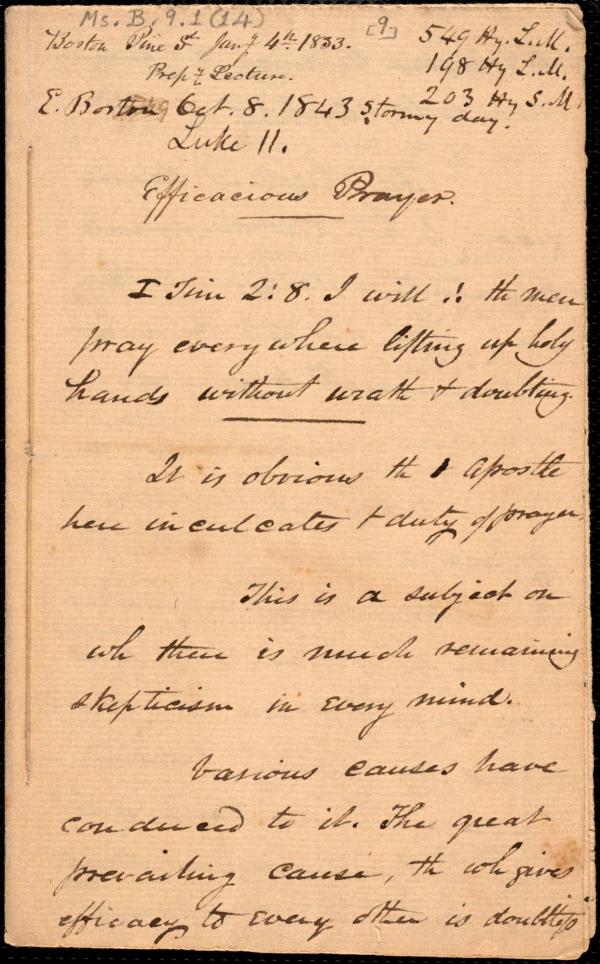 Ms. B. 9.1 (14)
[9]
Boston Pine St Jany 4th. 1833.
549 Hy. L.M.
Prepy Lecture.
198 Hy L.M.
203 Hy S.M.
E. Boston Oct. 8. 1843 stormy day.
Luke 11.
Efficacious Prayer.
I Tim 2:8. I will .'. th men
pray everywhere lifting up holy
hands without wrath & doubting.
It is obvious th Apostle
here inculcates duty of prayer.
This is a subject on
wh there is much remaining
skepticism in every mind.
Various causes have
conduced to it. The great
prevailing cause, th wh gives
efficacy to every other is doubtless